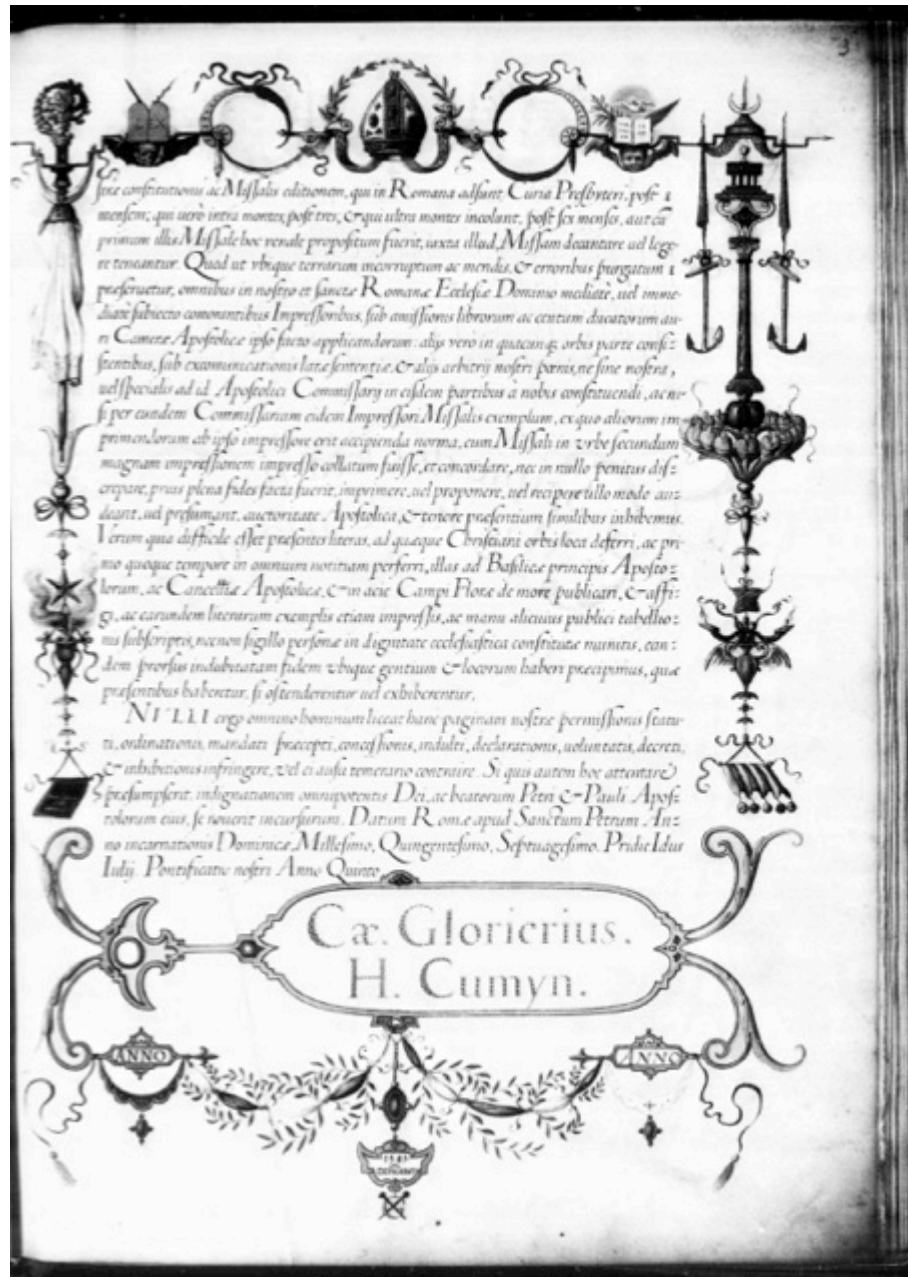 3
stræ constitutionis ac Missalis editionem, qui in Romana adsunt Curia Presbyteri, post i
mensem; qui uerò intra montes, post tres, & qui ultra montes incolunt, post sex menses, aut cū
primum illis Missale hoc venale propositum fuerit, iuxta illud, Missam decantare uel lege-
re teneantur. Quod ut vbique terrarum incorruptum ac mendis, & erroribus purgatum
præseruetur, omnibus in nostro et sanctæ Romanæ Ecclesiæ Dominio mediatè, uel imme-
diatè subiecto commorantibus Impressoribus, sub amissionis librorum ac centum ducatorum au-
ri Cameræ Apostolicæ ipso facto applicandorum: alijs vero in quacunq; orbis parte consi-
stentibus, sub excomunicationis latæ sententiæ, & alijs arbitrij nostri pœnis, ne sine nostra,
uel specialis ad id Apostolici Commissarij in eisdem partibus a nobis constituendi, ac ni-
si per eundem Commissarium eidem Impressori Missalis exemplum, ex quo aliorum im
primendorum ab ipso impressore erit accipienda norma, cum Missali in vrbe secundum
magnam impressionem impresso collatum fuisse, et concordare, nec in nullo penitus dis-
crepare, prius plena fides facta fuerit, imprimere, uel proponere, uel recipere ullo modo au-
deant, uel presumant, auctoritate Apostolica, & tenore præsentium similibus inhibemus.
Verum quia difficile esset præsentes literas, ad quæque Christiani orbis loca deferri, ac pri
mo quoque tempore in omnium notitiam perferri, illas ad Basilicæ principis Aposto-
lorum, ac Cancellæ Apostolicæ, & in acie Campi Floræ de more publicari, & affi-
gi, ac earundem literarum exemplis etiam impressis, ac manu alicuius publici tabellio-
nis subscriptis, necnon sigillo personæ in dignitate ecclesiastica constitutæ munitis, ean-
dem prorsus indubitatam fidem vbique gentium & locorum haberi præcipimus, quæ
præsentibus haberetur, si ostenderentur uel exhiberentur.
NVLLI ergo omnino hominum liceat hanc paginam nostræ permissionis statu-
ti, ordinationis, mandati præcepti, concessionis, indulti, declarationis, uoluntatis, decreti,
& inhibitionis infringere, vel ei ausu temerario contraire. Si quis autem hoc attentare
præsumpserit, indignationem omnipotentis Dei, ac beatorum Petri & Pauli Apos-
tolorum eius, se nouerit incursurum. Datum Romæ apud Sanctum Petrum An-
no incarnationis Dominicæ Millesimo, Quingentesimo, Septuagesimo. Pridie Idus
Iulij. Pontificatus nostri Anno Quinto.
Cæ. Gloricrius.
H. Cumyn.
ANNO
ANNO